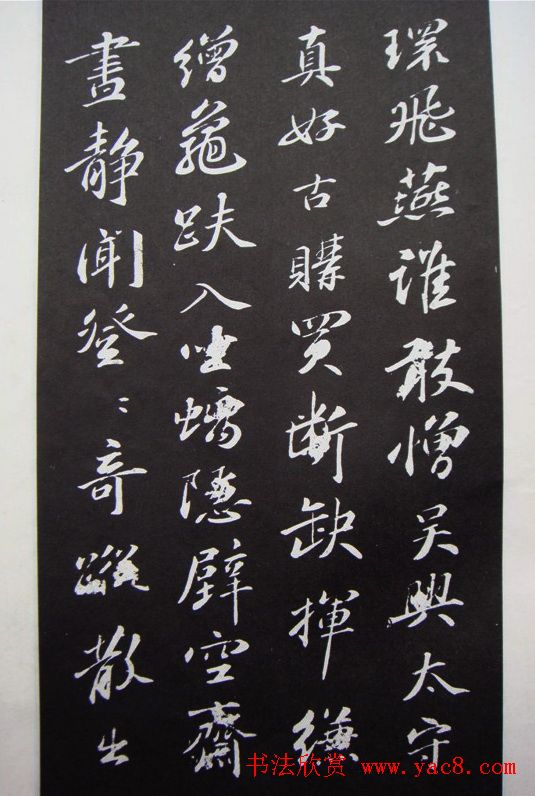 環飛燕誰敢憎吳興太守
真好古購買斷缺揮縑
繒龜趺入坐螭隱壁空齋
晝靜聞登〻奇蹤散出
书法欣赏 www.yac8.com